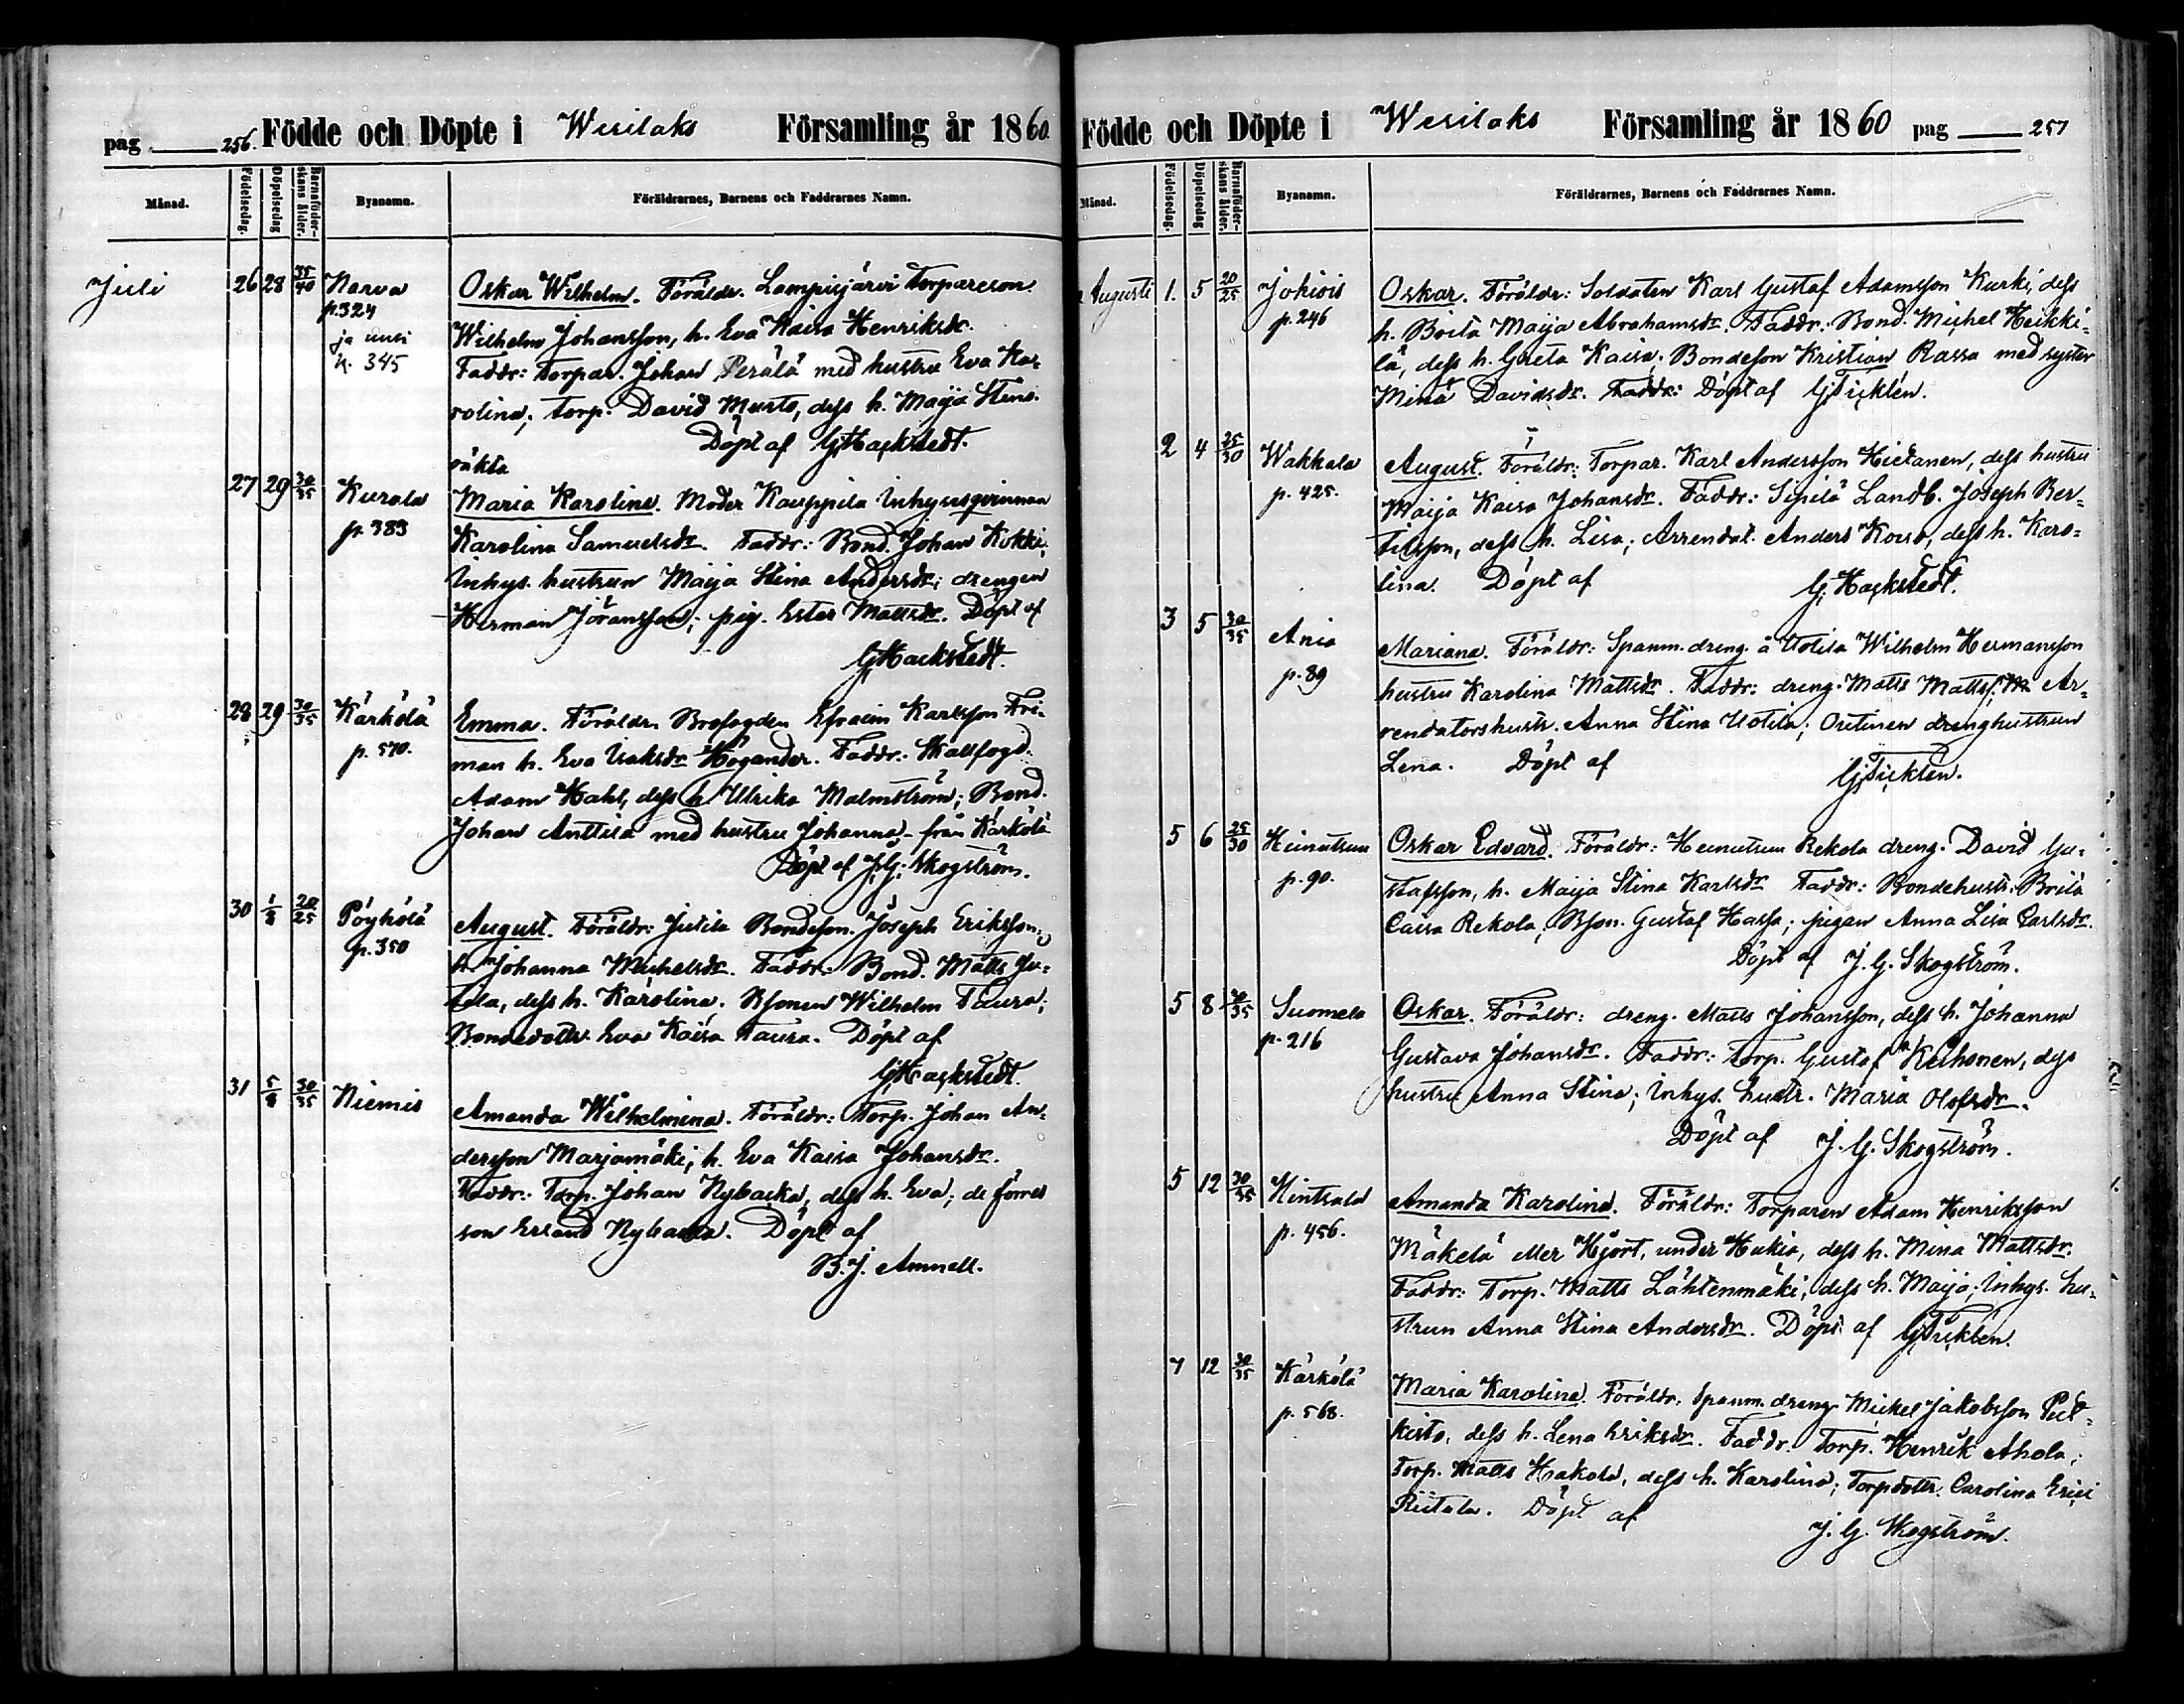 pag 256. Födde och Döpte i Wesilaks Församling år 1860
Månad. Födelsedag. Döpelsedag Barnaföderskans ålder. Byanamn. Föräldrarnes, Barnens och Faddrarnes Namn.
Juli 26 28 35/40 Narva Oskar Wilhelm. Föräldr. Lampisjärvi torpareson
p. 324
Wilhelm Johansson, h. Eva Kaisa Henriksdr.
ja uusi
k. 345
Faddr: Torpar. Johan Perälä med hustru Eva Ka-
rolina; torp. David Musto, dess h. Maija Stina.
Döpt af GHackstedt.
oäkta
27 29 30/35 Kurala Maria Karolina. Moder Kauppila Inhysesqvinnan
p. 383
Karolina Samuelsdr. Faddr: Bond. Johan Kokki;
Inhys. hustrun Maija Stina Andersdr; drengen
Herman Jöransson; pig. Ester Mattsdr. Döpt af
GHackstedt.
28 29 30/35 Kärkölä Emma. Föräldr. Brofogden Efraim Karlsson Fri-
p. 570.
man h. Eva Isaksdr Högander. Faddr: Skallfogd.
Adam Hahl, dess h. Ulrika Malmström; Bond.
Johan Anttila med hustru Johanna från Kärkölä
Döpt af J.G. Skogström.
30 1/8 20/25 Pöyhölä August. Föräldr: Jutila Bondeson. Joseph Eriksson,
p. 350
h. Johanna Michelsdr. Faddr: Bond. Matts Ju-
tila, dess h. Karolina; Bsonen Wilhelm Taura;
Bondedottr. Eva Kaisa Taura. Döpt af
GHackstedt.
31 5/8 30/35 Niemis Amanda Wilhelmina. Föräldr: Torp. Johan An-
dersson Marjamäki, h. Eva Kaisa Johansdr.
Faddr: Torp. Johan Nybacka, dess h. Eva; de förres
son Erland Nybacka. Döpt af
B. J. Amnell.
Födde och Döpte i Wesilaks Församling år 1860 pag 257
Månad. Födelsedag. Döpelsedag Barnaföderskans ålder. Byanamn. Föräldrarnes, Barnens och Faddrarnes Namn.
Augusti 1. 5 20/25 Johiois Oskar. Föräldr: Soldaten Karl Gustaf Adamsson Kurki, dess
p. 246
h. Brita Maija Abrahamsdr. Faddr. Bond. Michel Heikki-
lä, dess h. Greta Kaisa; Bondeson Kristian Rassa med syster
Mina Davidsdr. Faddr: Döpt af GTicklén.
2 4 25/30 Wakkala August. Föräldr: Torpar. Karl Andersson Hietanen, dess hustru
p. 425.
Maija Kaisa Johansdr. Faddr: Sipilä Landb. Joseph Ber-
tilsson, dess h. Lisa; Arrendat. Anders Koivo, dess h. Karo-
lina. Döpt af G. Hackstedt.
3 5 30/35 Ania Mariana. Föräldr: Spanm. dreng. å Uotila Wilhelm Hermansson
p. 89
hustru Karolina Mattsdr. Faddr: dreng. Matts Mattss. Ar-
rendatorshustr. Anna Stina Uotila; Outinen drenghustrun
Lena. Döpt af GTicklén.
5 6 25/30 Heinutsuu Oskar Edvard. Föräldr: Heinutsuu Rekola dreng. David Gu-
p. 90.
stafsson, h. Maija Stina Karlsdr Faddr: Bondehustr. Brita
Caisa Rekola; Bson. Gustaf Hassa; pigan Anna Lisa Carlsdr.
Döpt af J. G. Skogström.
5 8 Suomela Oskar. Föräldr: dreng. Matts Johansson, dess h. Johanna
p. 216
Gustava Johansdr. Faddr: Torp. Gustaf Keihonen, dess
hustru Anna Stina; Inhys. hustr. Maria Olofsdr.
Döpt af J. G. Skogström.
5 12 30/35 Hintsala Amanda Karolina. Föräldr: Torparen Adam Henriksson
p. 456.
Mäkelä eller Hjort, under Hukia, dess h. Mina Mattsdr.
Faddr: Torp. Matts Lähtenmäki, dess h. Maija; Inhys. hu-
strun Anna Stina Andersdr. Döpt af GTicklén.
7 12 30/35 Kärkölä Maria Karolina. Föräldr: Spanm. dreng Mickel Jakobsson Put-
p. 568.
kisto, dess h. Lena Eriksdr. Faddr. Torp. Henrik Ahola;
Torp. Matts Hakola, dess h. Karolina; Torpdottr. Carolina Erici
Riitala. Döpt af J. G. Skogström.